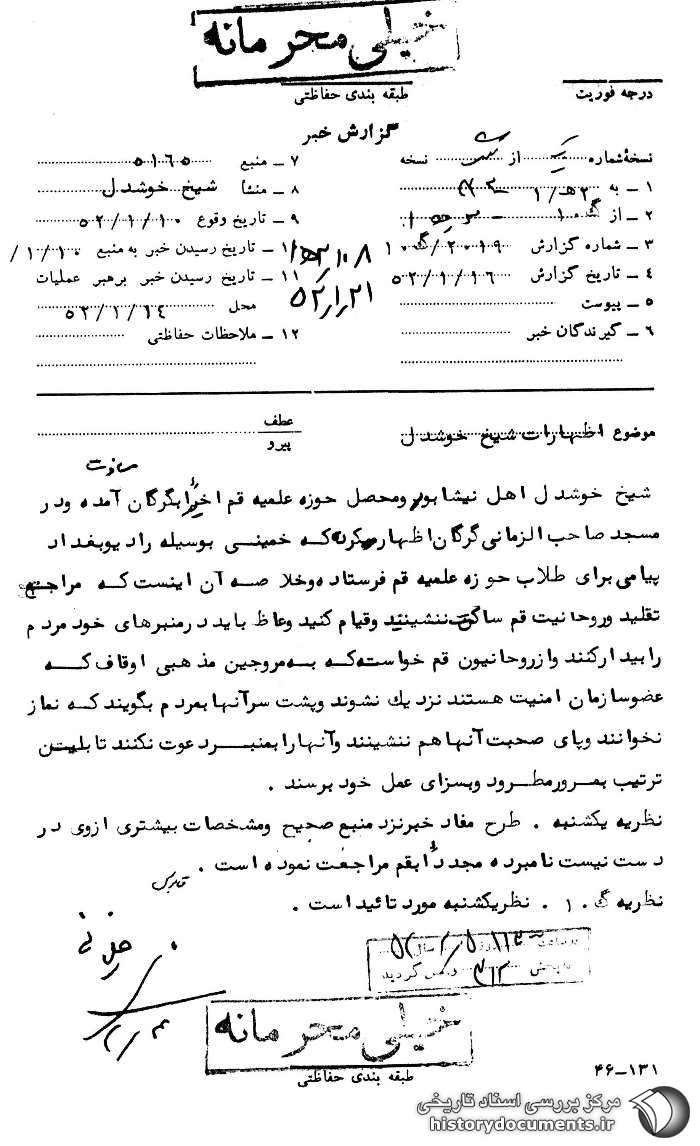 خیلی محرمانه
طبقه بندی حفاظتی
درجه فوریت
گزارش خبر
نسخهٔ شماره از نسخه
۱ ـ به ۳هـ/۱
۲ ـ از
۳ ـ شماره گزارش ۲۰۱۹/
۴ ـ تاریخ گزارش ۵۲/۱/۱۶
۵ ـ پیوست
۶ ـ گیرندگان خبر
۷ ـ منبع ۵۱۶۵
۸ ـ منشا شیخ خوشدل
۹ ـ تاریخ وقوع ۵۲/۱/۱۰
۱۰ ـ تاریخ رسیدن خبر به منبع /۱/۱۰
۱۱ ـ تاریخ رسیدن خبر برهبر عملیات
محل ۵۲/۱/۱٤
۱۲ ـ ملاحظات حفاظتی
۵۲/۱/۲۱
موضوع اظهارات شیخ خوشدل
عطف
پیرو
شیخ خوشدل اهل نیشابور ومحصل حوزه علمیه قم اخیراً بگرگان آمده ودر
مسجد صاحب الزمانی گرگان اظهار میکرد که خمینی بوسیله رادیو بغداد
پیامی برای طلاب حوزه علمیه قم فرستاده وخلاصه آن اینست که مراجع
تقلید وروحانیت قم ساکت ننشینند وقیام کنید وعاظ باید درمنبرهای خود مردم
را بیدار کنند و ازروحانیون قم خواسته که به مروجین مذهبی اوقاف که
عضوسازمان امنیت هستند نزدیك نشوند وپشت سرآنها بمردم بگویند که نماز
نخوانند وپای صحبت آنها هم ننشینند وآنها را بمنبر دعوت نکنند تا باین
ترتیب بمرور مطرود وبسزای عمل خود برسند .
نظریه یکشنبه . طرح مفاد خبرنزد منبع صحیح ومشخصات بیشتری ازوی در
دست نیست نامبرده مجدداً بقم مراجعت نموده است .
نظریه گ . ۱۰ . نظریکشنبه مورد تائید است .
خیلی محرمانه
طبقه بندی حفاظتی
۴۶-۱۳۱
مرکز بررسی اسناد تاریخی
historydocuments.ir